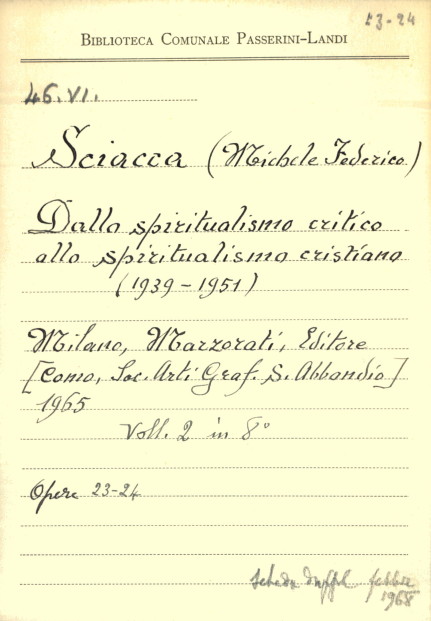 23-24
BIBLIOTECA COMUNALE PASSERINI-LANDI
46.VI.
Sciacca (Michele Federico)
Dallo spiritualismo critico
allo spiritualismo cristiano
(1939-1951)
Milano, Marzorati, Editore
[Como, Soc. Arti Graf. S. Abbondio]
1965
Voll. 2 in 8°
Opere 23-24
Scheda
1968